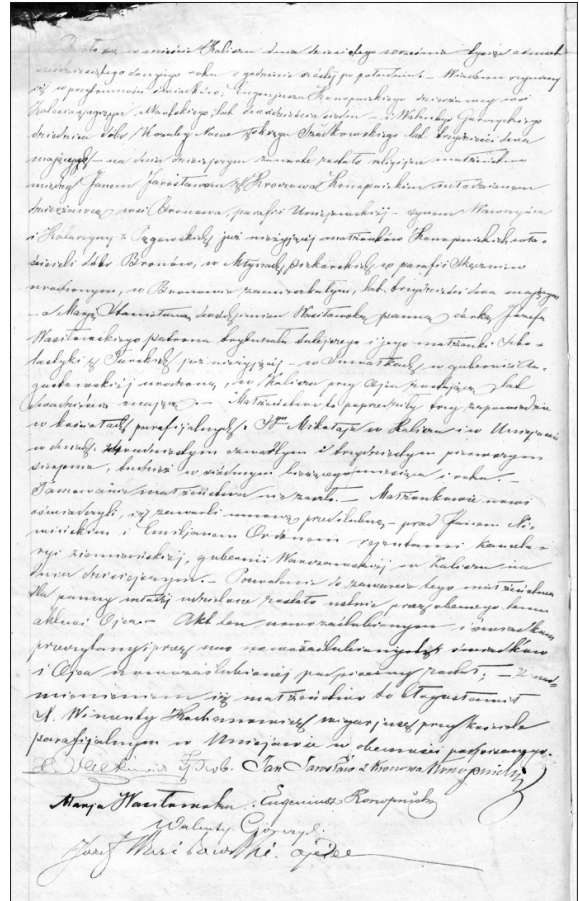 Działo się w mieście Kaliszu dnia dziesiątego września tysiąc ośmset
sześćdziesiątego drugiego roku o godzinie szóstej po południu. – Wiadomo czyniemy
iż w przytomności świadków; Eugeniusza Konopnickiego dzierżawcy wsi
lat dwadzieścia siedm – i Walentego Gorczyckiego
dziedzica dóbr Nowa lat trzydzieści dwa
mających – na dniu dzisiejszym zawarte zostało religijne małżeństwo
między Janem Jarosławem z Kronowa Konopnickim młodzianem
dzierżawcą wsi Bronowa parafii Uniejowskiéj – synem Wawrzyńca
i Katarzyny z już nieżyjącéj małżonków Konopnickich wła-
ścicieli dóbr Bronów, w Młynach piekarskich w parafii Skęczniew
urodzonym, w Bronowie zamieszkałym, lat trzydzieści dwa mającym
– a Maryą Stanisławą dwojga imion Wasiłowską panną córką Józefa
Wasiłowskiego patrona trybunału tutejszego i jego małżonki Scho-
lastyki z Turskich już nieżyjącéj – w Suwałkach w gubernii Au-
gustowskiéj urodzoną, w Kaliszu przy Ojcu zostającą, lat
dwadzieścia mającą – Małżeństwo to poprzedziły trzy zapowiedzie
w kościołach parafijalnych: Sgo Mikołaja w Kaliszu i w Uniejowie
w dniach: dwudziestym czwartym i trzydziestym pierwszym
sierpnia, tudzież w siódmym bieżącego miesiąca i roku. –
Tamowanie małżeństwa nie zaszło. – Małżonkowie nowi
oświadczyli, iż zawarli umowę przedślubną – przed Janem Ni-
wińskim i Emiljanem Ordonem rejentami kancela-
ryi ziemiańskiéj, gubernii Warszawskiéj w Kaliszu na
dniu dzisiejszym. – Pozwolenie do zawarcia tego małżeństwa
dla panny młodéj udzielone zostało ustnie przez obecnego temu
aktowi Ojca – Akt ten nowozaślubionym i świadkom
przeczytany i przez nas nowozaślubionych świadków
i Ojca nowozaślubionéj podpisany został; – z nad-
mienieniem iż małżeństwo to błogosławił
X. Wincenty Kochanowicz wikaryusz przy kościele
parafijalnym w Uniejowie w obecności podpisanego.
Jan Jarosław z Kronowa Konopnicki
Marja Wasiłowska. Eugeniusz Konopnicki
Walenty Gorczycki
Józef Wasiłowski. ojciec